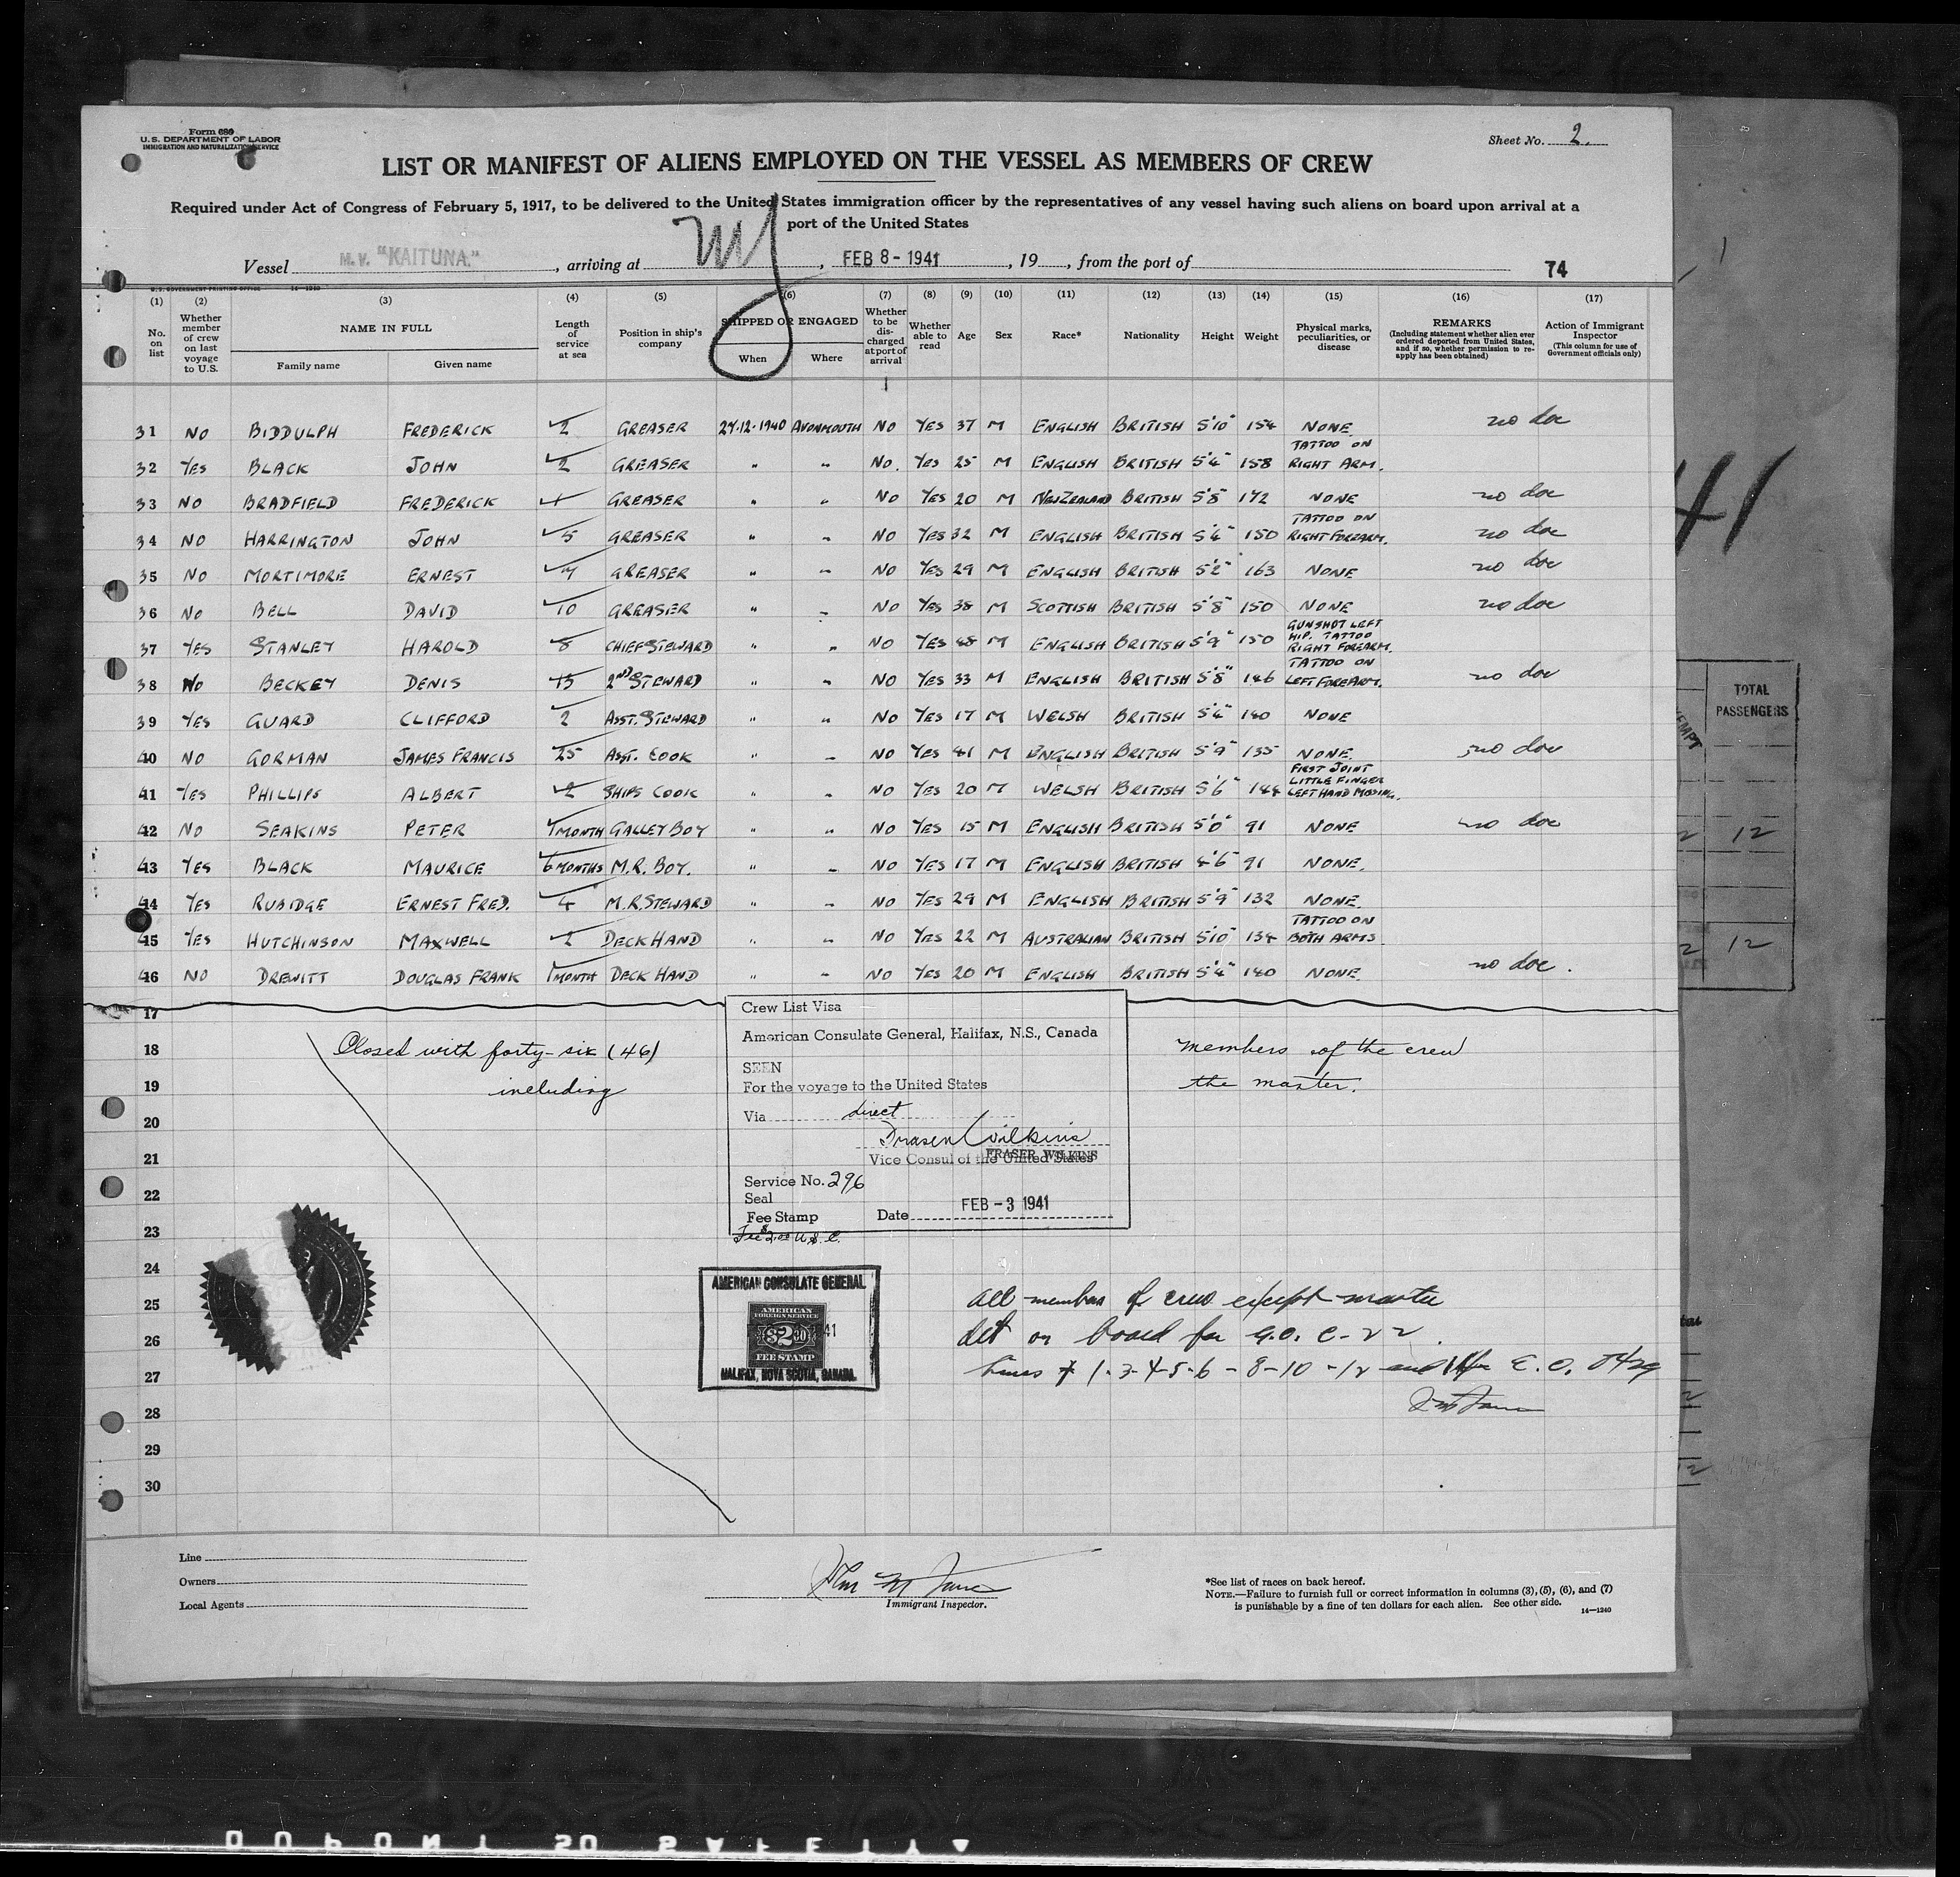 Form 680
U. S. DEPARTMENT OF LABOR
IMMIGRATION AND NATURALIZATION SERVICE
Sheet No. 2.
LIST OR MANIFEST OF ALIENS EMPLOYED ON THE VESSEL AS MEMBERS OF CREW
Required under Act of Congress of February 5, 1917, to be delivered to the United States immigration officer by the representatives of any vessel having such aliens on board upon arrival at a
port of the United States
Vessel M.V. "KAITUNA." , arriving at NY , FEB 8 - 1941 , 19 , from the port of
74
U. S. GOVERNMENT PRINTING OFFICE 14-1240
(1) (2) (3) (4) (5) (6) (7) (8) (9) (10) (11) (12) (13) (14) (15) (16) (17)
No. on list
Whether member of crew on last voyage to U.S.
NAME IN FULL
Family name
Given name
Length of service at sea
Position in ship's company
SHIPPED OR ENGAGED
When
Where
Whether to be dis-charged at port of arrival
Whether able to read
Age
Sex
Race*
Nationality
Height
Weight
Physical marks, peculiarities, or disease
REMARKS
(Including statement whether alien ever ordered deported from United States, and if so, whether permission to re-apply has been obtained)
Action of Immigrant Inspector
(This column for use of Government officials only)
31 NO BIDDULPH FREDERICK 2 GREASER 27.12.1940 AVONMOUTH NO YES 37 M ENGLISH BRITISH 5'10" 154 NONE. no doc
32 YES BLACK JOHN 2 GREASER " " NO. YES 25 M ENGLISH BRITISH 5'4" 158 TATTOO ON RIGHT ARM.
33 NO BRADFIELD FREDERICK GREASER " " NO YES 20 M NEW ZEALAND BRITISH 5'8" 172 NONE no doc
34 NO HARRINGTON JOHN 5 GREASER " " NO YES 32 M ENGLISH BRITISH 5'4" 150 TATTOO ON RIGHT FOREARM. no doc
35 NO MORTIMORE ERNEST 7 GREASER " " NO YES 29 M ENGLISH BRITISH 5'2" 163 NONE no doc
36 NO BELL DAVID 10 GREASER " " NO YES 38 M SCOTTISH BRITISH 5'8" 150 NONE no doc
37 YES STANLEY HAROLD 8 CHIEF STEWARD " " NO YES 48 M ENGLISH BRITISH 5'9" 150 GUNSHOT LEFT HIP. TATTOO RIGHT FOREARM.
38 NO BECKEY DENIS 15 2ND STEWARD " " NO YES 33 M ENGLISH BRITISH 5'8" 146 TATTOO ON LEFT FOREARM. no doc
39 YES GUARD CLIFFORD 2 ASST. STEWARD " " NO YES 17 M WELSH BRITISH 5'4" 140 NONE
40 NO GORMAN JAMES FRANCIS 25 ASST. COOK " " NO YES 41 M ENGLISH BRITISH 5'9" 135 NONE. no doc
41 YES PHILLIPS ALBERT 2 SHIPS COOK " " NO YES 20 M WELSH BRITISH 5'6" 144 FIRST JOINT LITTLE FINGER LEFT HAND MISSING.
42 NO SEAKINS PETER 1 MONTH GALLEY BOY " " NO YES 15 M ENGLISH BRITISH 5'0" 91 NONE no doc
43 YES BLACK MAURICE 6 MONTHS M.R. BOY. " " NO YES 17 M ENGLISH BRITISH 4'6" 91 NONE.
44 YES RUBIDGE ERNEST FRED. 4 M.R. STEWARD " " NO YES 29 M ENGLISH BRITISH 5'9" 132 NONE.
45 YES HUTCHINSON MAXWELL 2 DECK HAND " " NO YES 22 M AUSTRALIAN BRITISH 5'10" 134 TATTOO ON BOTH ARMS
46 NO DREWITT DOUGLAS FRANK 1 MONTH DECK HAND " " NO YES 20 M ENGLISH BRITISH 5'4" 140 NONE. no doc.
17
18 Closed with forty-six (46) members of the crew
19 including the master.
20
21
22
23
24
25
26
27
28
29
30
Crew List Visa
American Consulate General, Halifax, N.S., Canada
SEEN
For the voyage to the United States
Via direct
Fraser Wilkins
Vice Consul of the United States
FRASER WILKINS
Service No. 296
Seal
Fee Stamp
Date FEB - 3 1941
Fee $2.00 U.S.C.
AMERICAN CONSULATE GENERAL
AMERICAN
FOREIGN SERVICE
$2.00
41
FEE STAMP
HALIFAX, NOVA SCOTIA, CANADA.
All members of crew except master
det on board for G.O. C-22.
Lines # 1-3-4-5-6-8-10-12 and E.O. 8429
Line
Owners
Local Agents
Immigrant Inspector.
*See list of races on back hereof.
NOTE.—Failure to furnish full or correct information in columns (3), (5), (6), and (7)
is punishable by a fine of ten dollars for each alien. See other side.
14-1240
41
TOTAL
PASSENGERS
EMPT
2 12
2 12